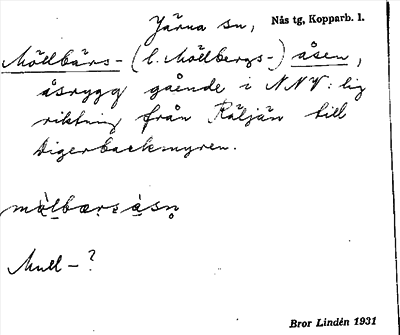 Järna sn, Nås tg, Kopparb. l.
Mödbärs- (l. Mödbergs-) åsen,
åsrygg gående i NNV: lig
riktning från Räljän till
Digerbackmyren.
mö̀lbærsàsn̥
Mull-?
Bror Lindén 1931